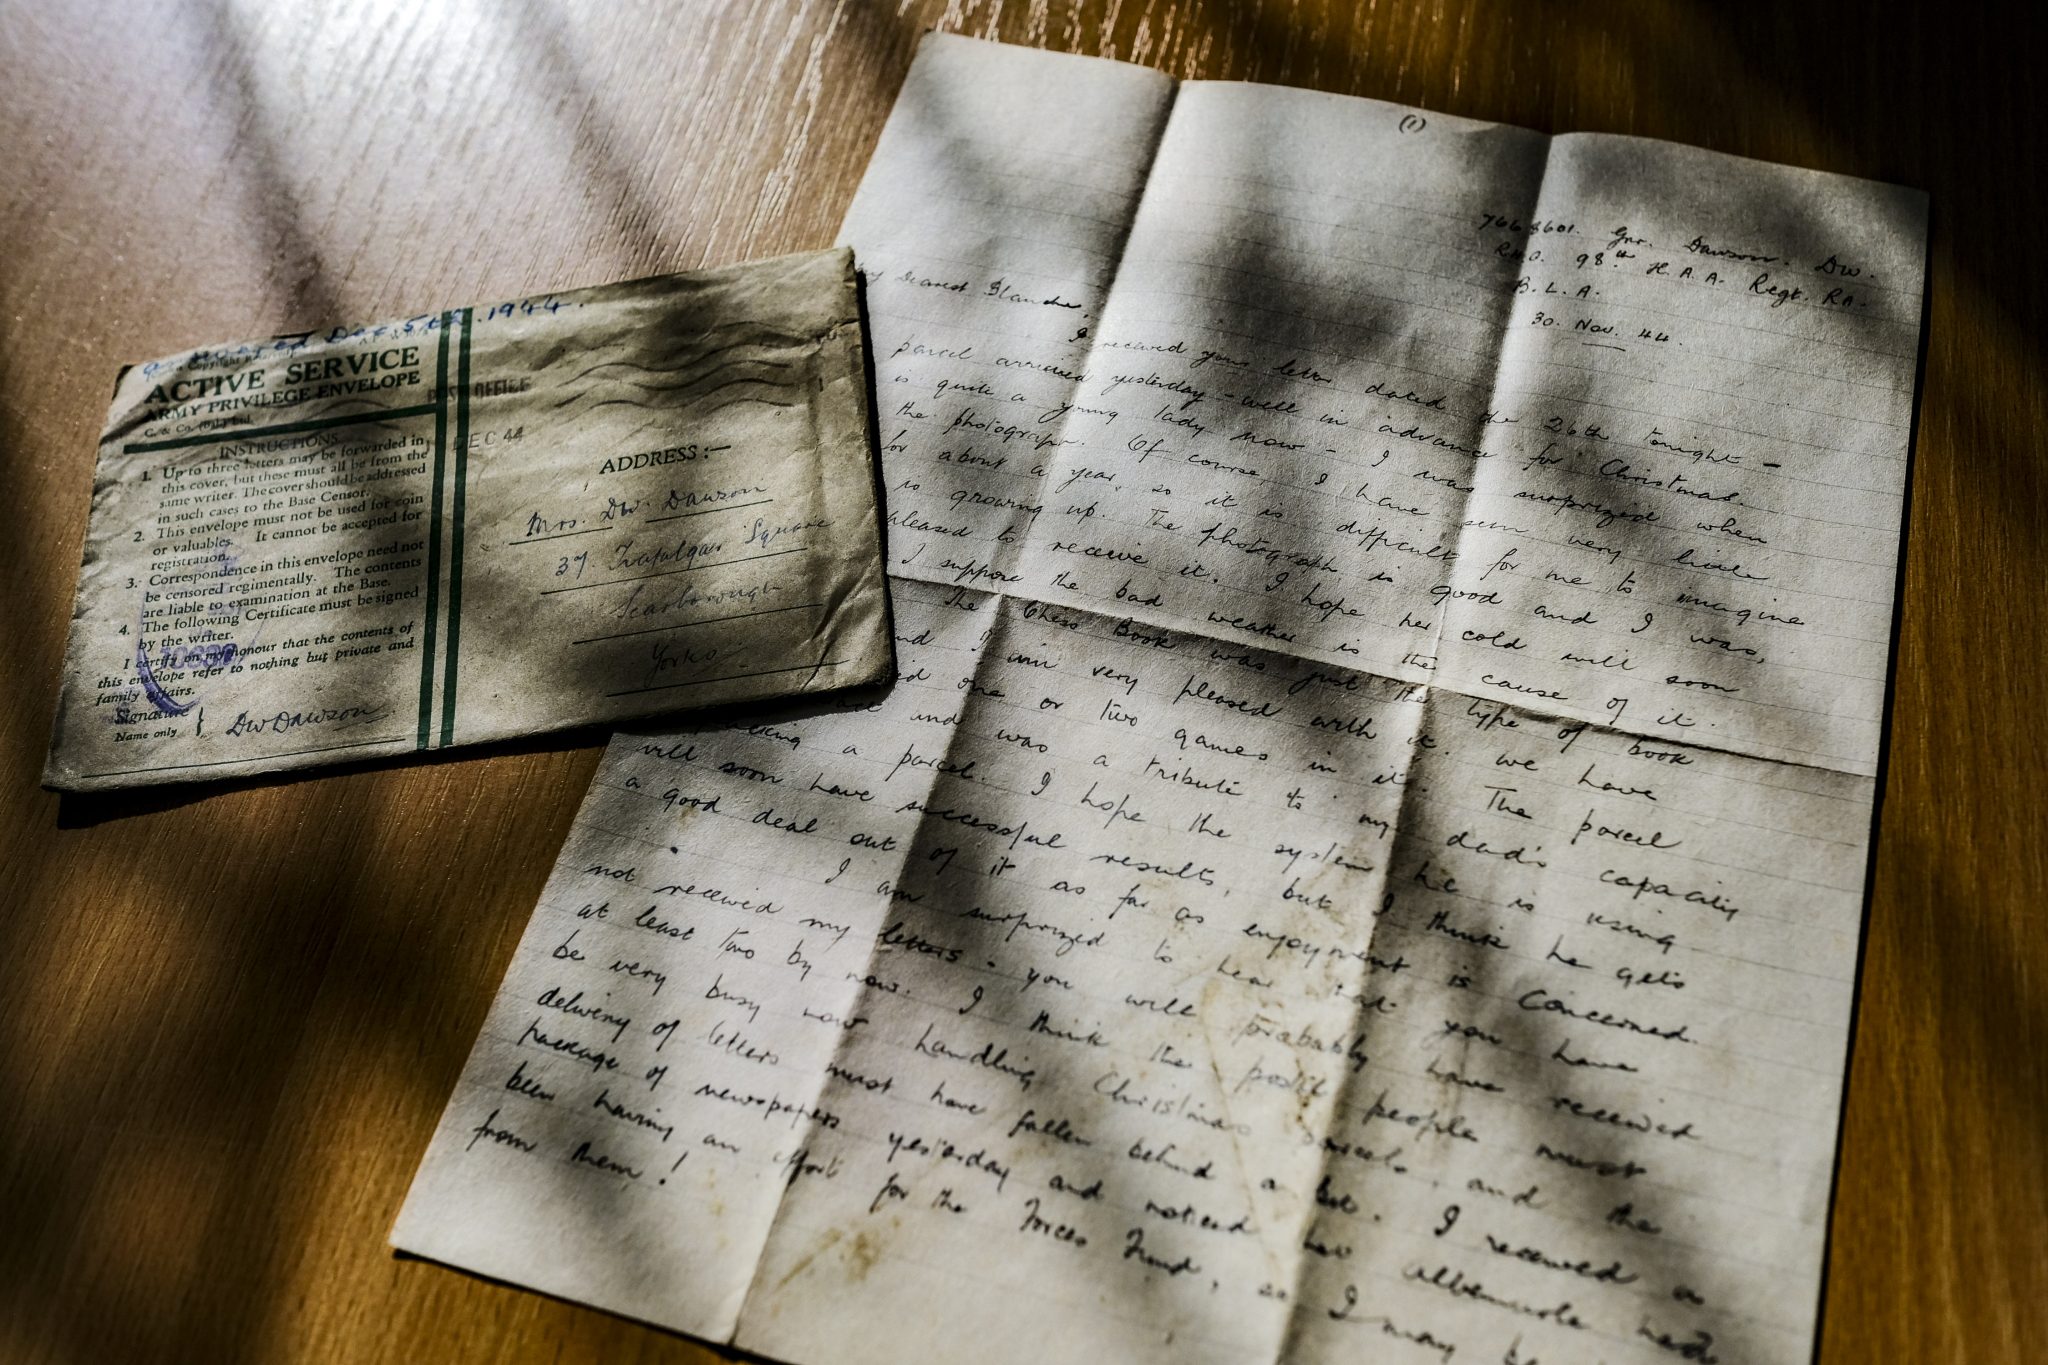 Answered Dec 5th. 1944.
ACTIVE SERVICE
ARMY PRIVILEGE ENVELOPE
INSTRUCTIONS.
1. Up to three letters may be forwarded in
this cover, but these must all be from the
same writer. The cover should be addressed
in such cases to the Base Censor.
2. This envelope must not be used for coin
or valuables. It cannot be accepted for
registration.
3. Correspondence in this envelope need not
be censored regimentally. The contents
are liable to examination at the Base.
4. The following Certificate must be signed
by the writer.
I certify on my honour that the contents of
this envelope refer to nothing but private and
family affairs.
Signature
Name only
DW Dawson
POST OFFICE
DEC 44
ADDRESS :—
Mrs. DW. Dawson
37. Trafalgar Square
Scarborough
Yorks
(1)
7668601. Gnr. Dawson. DW.
R.H.Q. 98th H.A.A. Regt. RA.
B.L.A.
30. Nov. 44.
My Dearest Blanche,
I received your letter dated the 26th tonight –
parcel arrived yesterday – well in advance for Christmas.
is quite a young lady now – I was surprized when
the photograph. Of course, I have seen very little
for about a year, so it is difficult for me to imagine
is growing up. The photograph is good and I was,
pleased to receive it. I hope her cold will soon
I suppose the bad weather is the cause of it.
The Chess Book was just the type of book
and I am very pleased with it. We have
one or two games in it. The parcel
and was a tribute to my dad's capacity
a parcel. I hope the system he is using
will soon have successful results, but I think he gets
a good deal out of it as far as enjoyment is concerned.
I am surprized to hear that you have
not received my letters - you will probably have received
at least two by now. I think the postal people must
be very busy now handling Christmas parcels, and the
delivery of letters must have fallen behind a bit. I received a
package of newspapers yesterday and noticed had
been having an effort for the Forces Fund, so I may
from them!